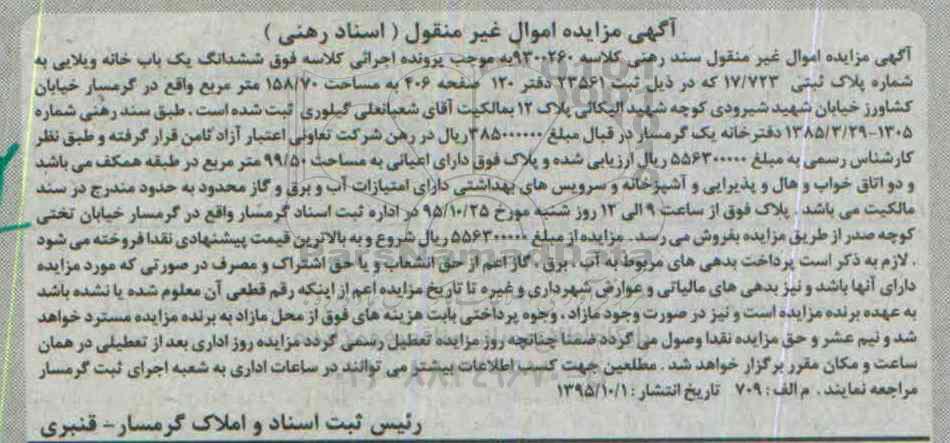 آگهی مزایده اموال غیر منقول ( اسناد رهنی )
آگهی مزایده اموال غیر منقول سند رهنی کلاسه ۹۳۰۰۲۶۰به موجب پرونده اجرائی کلاسه فوق ششدانگ یک باب خانه ویلایی به
شماره پلاک ثبتی ۱۷/۷۲۳ که در ذیل ثبت ۲۳۵۶۱ دفتر ۱۲۰ صفحه ۴۰۶ به مساحت ۱۵۸/۷۰ متر مربع واقع در گرمسار خیابان
کشاورز خیابان شهید شیرودی کوچه شهید الیکائی پلاک ۱۲ بمالکیت آقای شعبانعلی گیلوری ثبت شده است . طبق سند رهنی شماره
۱۳۰۵-۱۳۸۵/۳/۲۹ دفتر خانه یک گرمسار در قبال مبلغ ۳۸۵۰۰۰۰۰۰ریال در رهن شرکت تعاونی اعتبار آزاد ثامن قرار گرفته و طبق نظر
کارشناس رسمی به مبلغ ۵۵۶۳۰۰۰۰۰ ریال ارزیابی شده و پلاک فوق دارای اعیانی به مساحت ۹۹/۵۰ متر مربع در طبقه همکف می باشد
و دو اتاق خواب و هال و پذیرایی و آشپزخانه و سرویس های بهداشتی دارای امتیازات آب و برق و گاز محدود به حدود مندرج در سند
مالکیت می باشد . پلاک فوق از ساعت ۹ الی ۱۲ روز شنبه مورخ ۹۵/۱۰/۲۵ در اداره ثبت اسناد گرمسار واقع در گرمسار خیابان تختی
کوچه صدر از طریق مزایده بفروش می رسد . مزایده از مبلغ ۵۵۶۳۰۰۰۰۰ ریال شروع و به بالاترین قیمت پیشنهادی نقدا فروخته می شود
. لازم به ذکر است پرداخت بدهی های مربوط به آب ، برق ، گاز اعم از حق انشعاب و یا حق اشتراک و مصرف در صورتی که مورد مزایده
دارای آنها باشد و نیز بدهی های مالیاتی و عوارض شهرداری و غیره تا تاریخ مزایده اعم از اینکه رقم قطعی آن معلوم شده یا نشده باشد
به عهده برنده مزایده است و نیز در صورت وجود مازاد ، وجوه پرداختی بابت هزینه های فوق از محل مازاد به برنده مزایده مسترد خواهد
شد و نیم عشر و حق مزایده نقدا وصول می گردد ضمنا چنانچه روز مزایده تعطیل رسمی گردد مزایده روز اداری بعد از تعطیلی در همان
ساعت و مکان مقرر برگزار خواهد شد . مطلعین جهت کسب اطلاعات بیشتر می توانند در ساعات اداری به شعبه اجرای ثبت گرمسار
مراجعه نمایند . م الف : ۷۰۹ تاریخ انتشار : ۱۳۹۵/۱۰/۱
رئیس ثبت اسناد و املاک گرمسار- قنبری